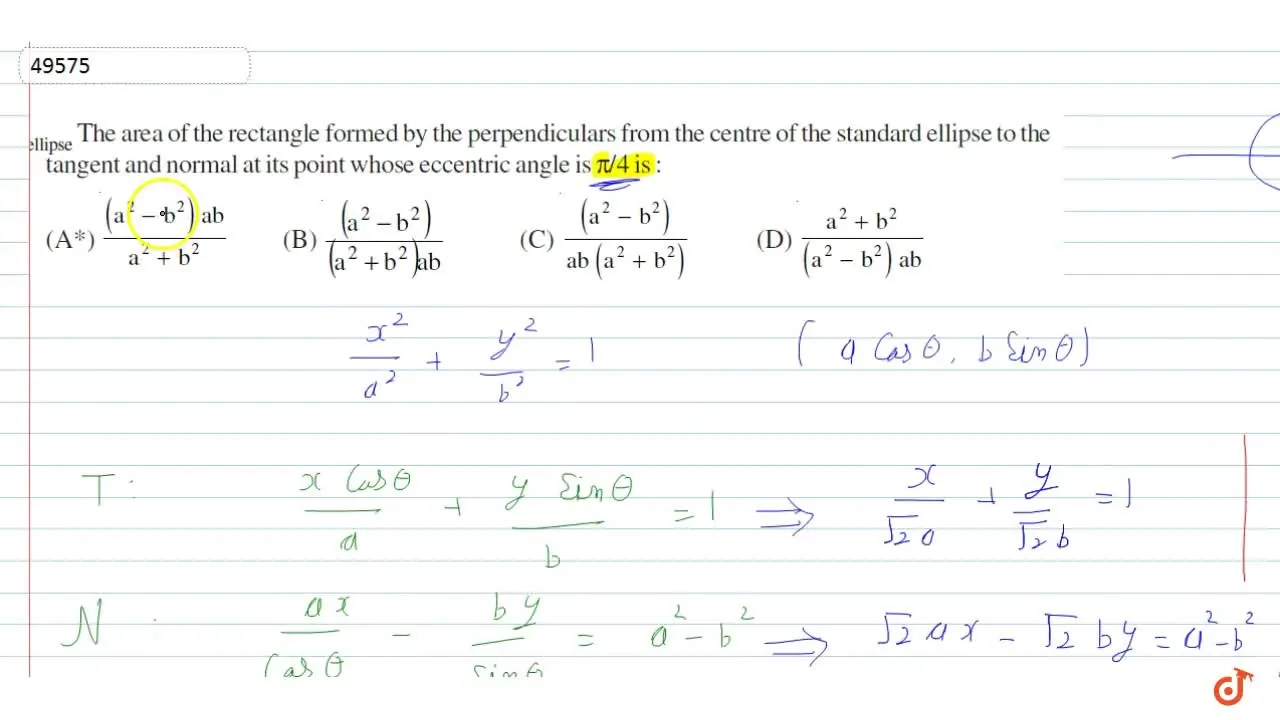 49575
ellipse The area of the rectangle formed by the perpendiculars from the centre of the standard ellipse to the
tangent and normal at its point whose eccentric angle is π/4 is :
(A*) (a² − b²) ab / a² + b² (B) (a² − b²) / (a² + b²)ab (C) (a² − b²) / ab (a² + b²) (D) a² + b² / (a² − b²) ab
x²/a² + y²/b² = 1 (a Cosθ, b Sinθ)
T : x Cosθ / a + y Sinθ / b = 1 ⇒ x/√2 a + y/√2 b = 1
N : ax / Cosθ − by / sinθ = a² − b² ⇒ √2 ax − √2 by = a² − b²